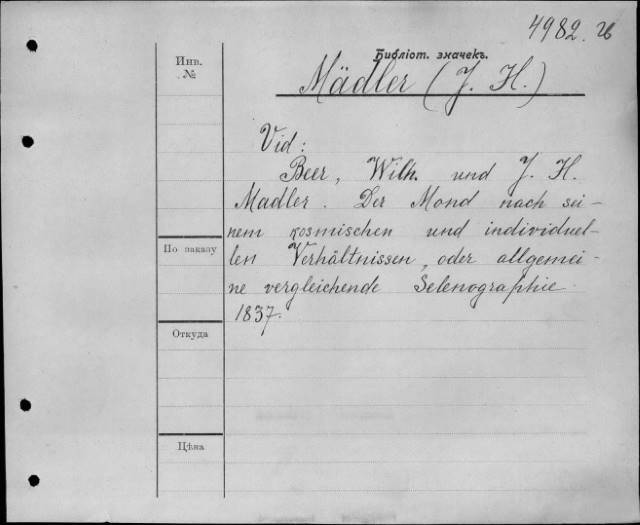 4982.
Инв.
№
Библіот. значекъ.
Mädler (J. H.)
Vid:
Beer, Wilh. und J. H.
Madler. Der Mond nach sei-
nem kosmischen und individuel-
len Verhältnissen, oder allgemei-
ne vergleichende Selenographie.
1837.
По заказу
Откуда
Цѣна